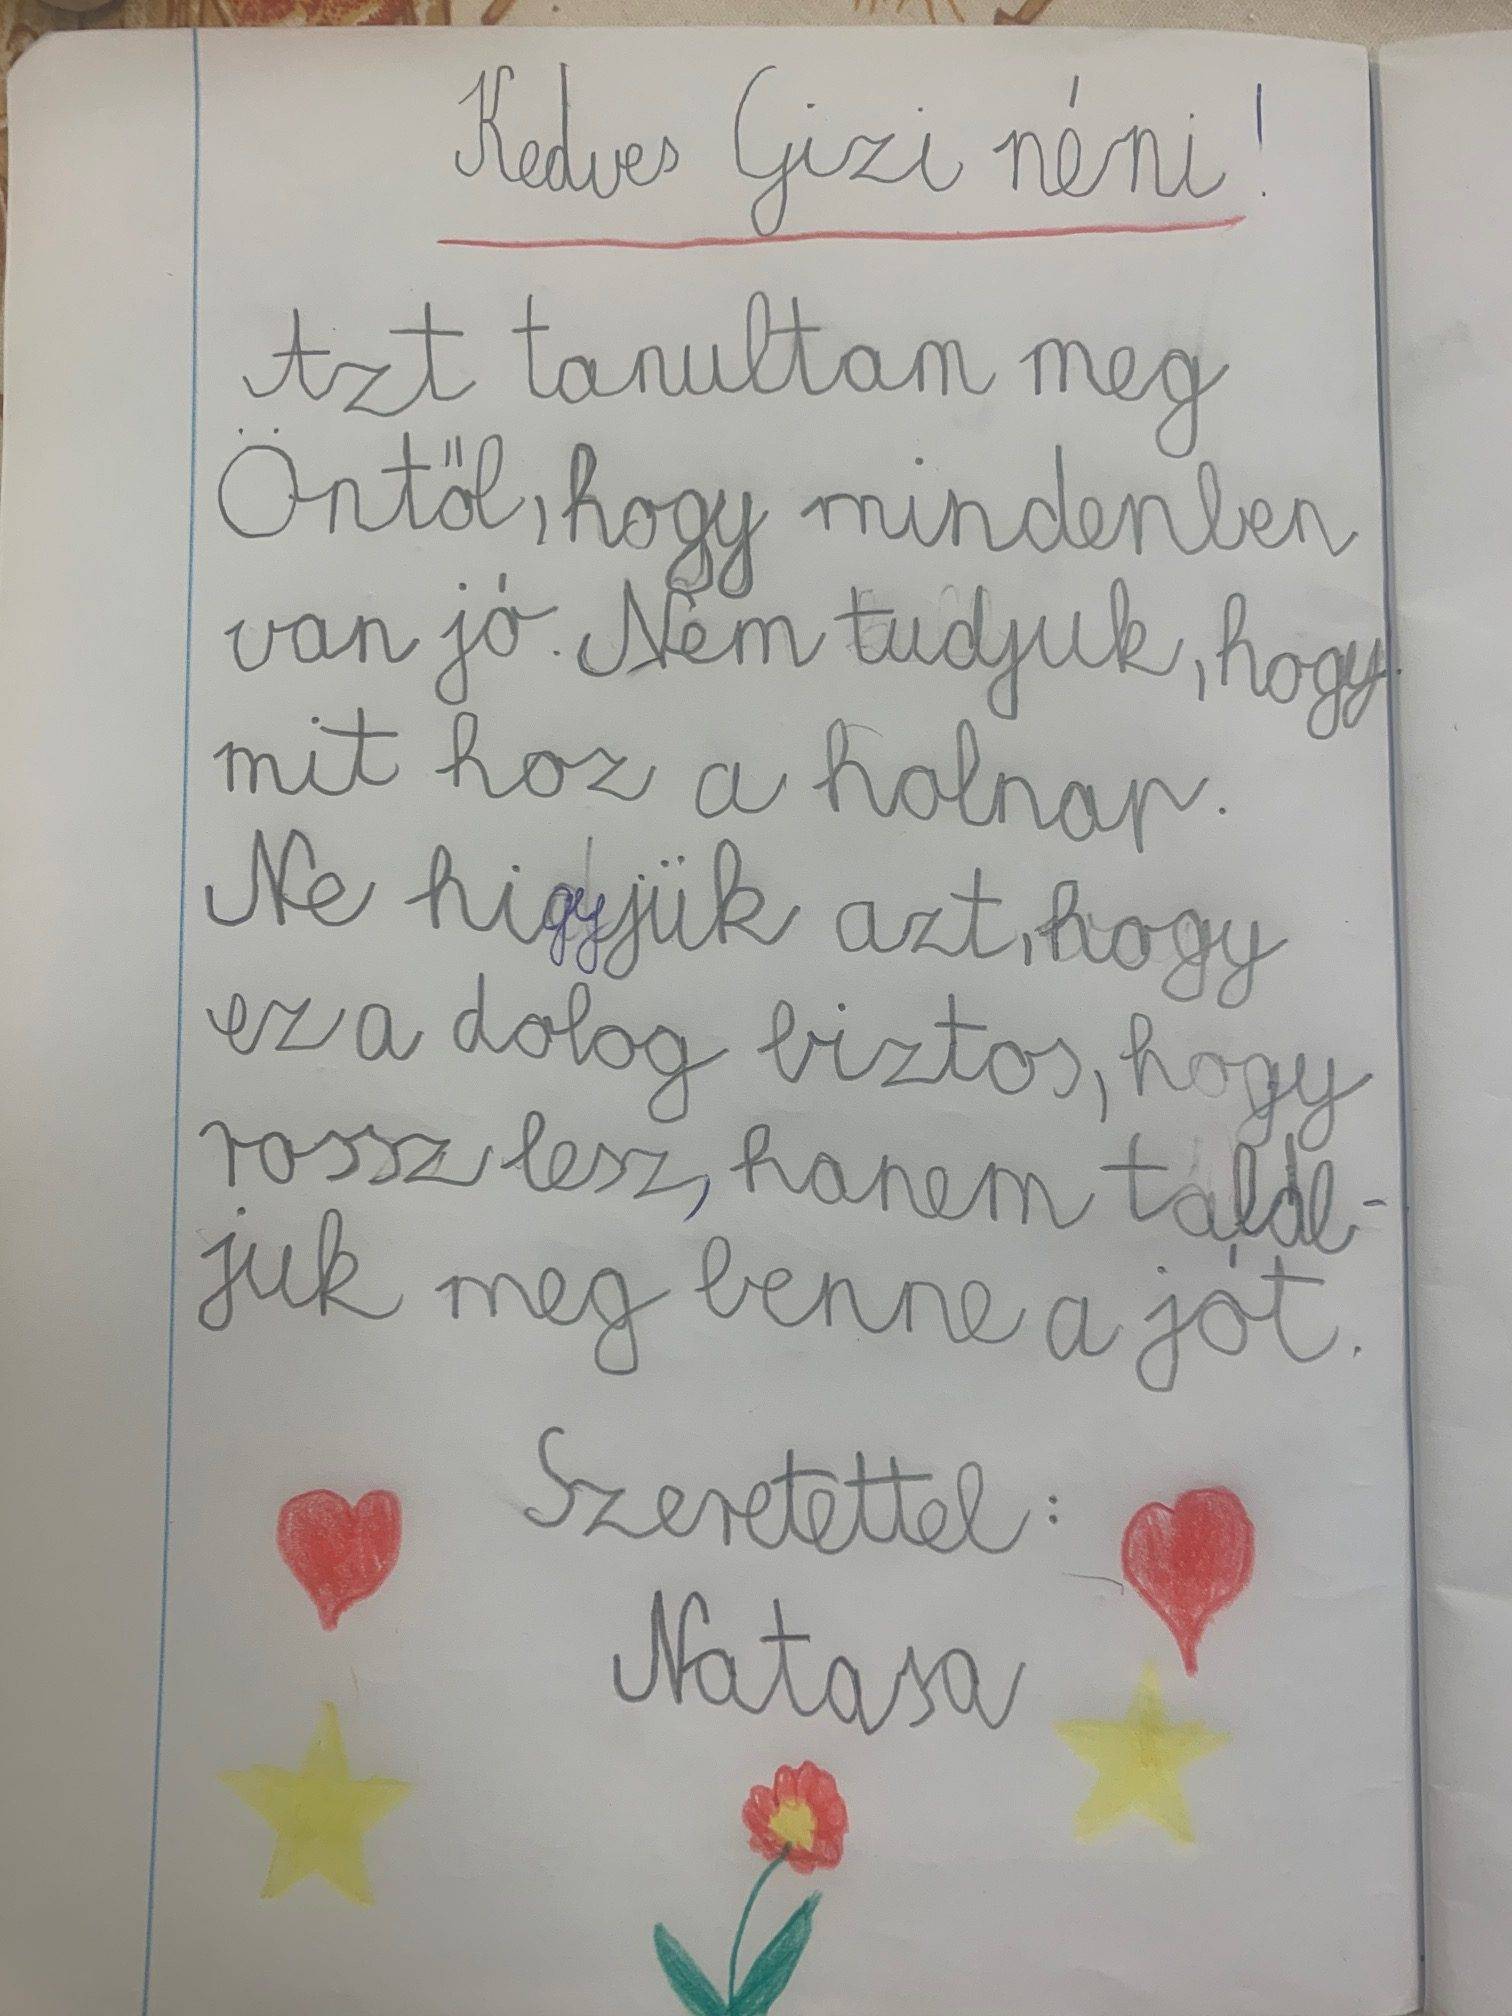 Kedves Gizi néni!
Azt tanultam meg
Öntől, hogy mindenben
van jó. Nem tudjuk, hogy
mit hoz a holnap.
Ne higyjük azt, hogy
ez a dolog biztos, hogy
rossz lesz, hanem talál-
juk meg benne a jót.
Szeretettel:
Natasa